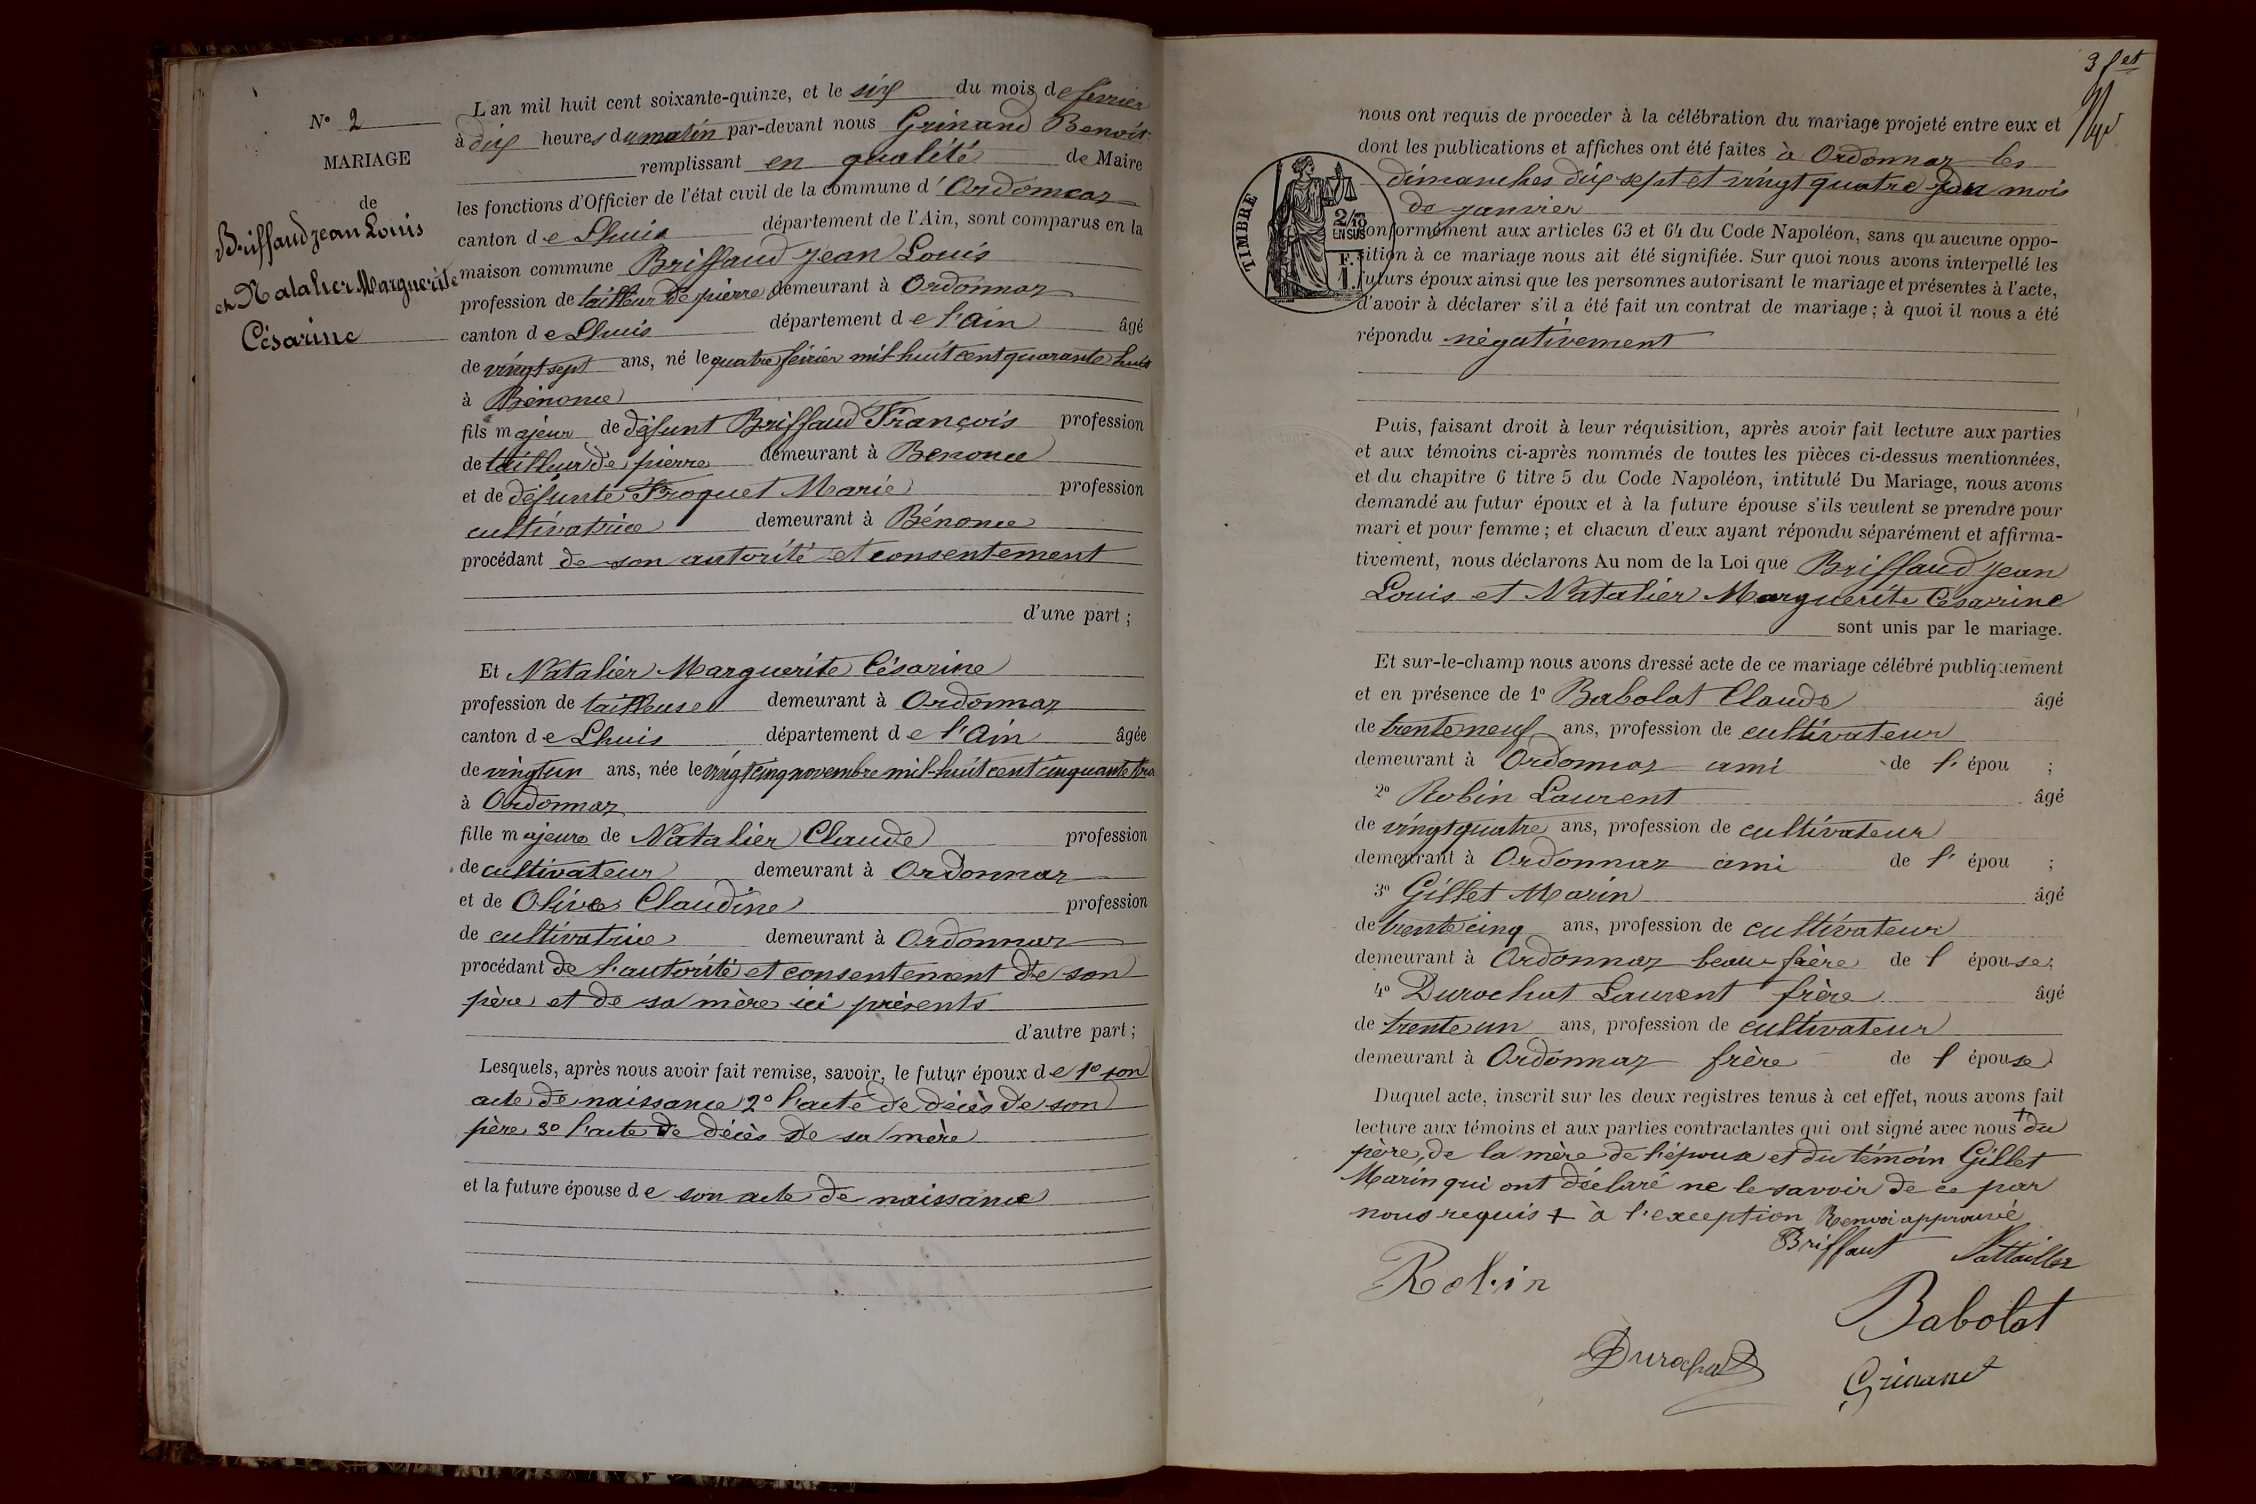 N° 2
MARIAGE
de
Briffaud jean Louis
et Natalier Marguerite
Césarine
L'an mil huit cent soixante-quinze, et le six du mois de fevrier
à dix heures du matin par-devant nous Grinand Benoit
remplissant en qualité de Maire
les fonctions d'Officier de l'état civil de la commune d'Ordonnaz
canton de Lhuis département de l'Ain, sont comparus en la
maison commune Briffaud jean Louis
profession de tailleur de pierre demeurant à Ordonnaz
canton de Lhuis département de l'Ain âgé
de vingt sept ans, né le quatre février mil huit cent quarante huit
à Bénonce
fils majeur de défunt Briffaud François profession
de tailleur de pierre demeurant à Benonce
et de défunte Froquet Marie profession
cultivatrice demeurant à Bénonce
procédant de son autorité et consentement
d'une part ;
Et Natalier Marguerite Césarine
profession de tailleuse demeurant à Ordonnaz
canton de Lhuis département de l'Ain âgée
de vingt un ans, née le vingt cinq novembre mil-huit cent cinquante trois
à Ordonnaz
fille majeure de Natalier Claude profession
de cultivateur demeurant à Ordonnaz
et de Olive Claudine profession
de cultivatrice demeurant à Ordonnaz
procédant de l'autorité et consentement de son
père et de sa mère ici présents
d'autre part ;
Lesquels, après nous avoir fait remise, savoir, le futur époux de 1° son
acte de naissance 2° l'acte de décès de son
père 3° l'acte de décès de sa mère
et la future épouse de son acte de naissance
3 fet
nous ont requis de proceder à la célébration du mariage projeté entre eux et
dont les publications et affiches ont été faites à Ordonnaz les
dimanches dix sept et vingt quatre du mois
de janvier
TIMBRE
2/10
EN SUS
F.
1.
conformément aux articles 63 et 64 du Code Napoléon, sans qu'aucune oppo-
sition à ce mariage nous ait été signifiée. Sur quoi nous avons interpellé les
futurs époux ainsi que les personnes autorisant le mariage et présentes à l'acte,
d'avoir à déclarer s'il a été fait un contrat de mariage ; à quoi il nous a été
répondu négativement
Puis, faisant droit à leur réquisition, après avoir fait lecture aux parties
et aux témoins ci-après nommés de toutes les pièces ci-dessus mentionnées,
et du chapitre 6 titre 5 du Code Napoléon, intitulé Du Mariage, nous avons
demandé au futur époux et à la future épouse s'ils veulent se prendre pour
mari et pour femme ; et chacun d'eux ayant répondu séparément et affirma-
tivement, nous déclarons Au nom de la Loi que Briffaud jean
Louis et Natalier Marguerite Césarine
sont unis par le mariage.
Et sur-le-champ nous avons dressé acte de ce mariage célébré publiquement
et en présence de 1° Babolat Claude âgé
de trente neuf ans, profession de cultivateur
demeurant à Ordonnaz ami de l'épou ;
2° Robin Laurent âgé
de vingt quatre ans, profession de cultivateur
demeurant à Ordonnaz ami de l'épou ;
3° Gillet Marin âgé
de trente cinq ans, profession de cultivateur
demeurant à Ordonnaz beau-frère de l épouse ;
4° Durochat Laurent frère âgé
de trente un ans, profession de cultivateur
demeurant à Ordonnaz frère de l épouse
Duquel acte, inscrit sur les deux registres tenus à cet effet, nous avons fait
lecture aux témoins et aux parties contractantes qui ont signé avec nous + du
père, de la mère de l'épouse et du témoin Gillet
Marin qui ont déclaré ne le savoir de ce par
nous requis + à l'exception Renvoi approuvé
Briffaut Nattailler
Robin
Babolat
Durochat
Grinand